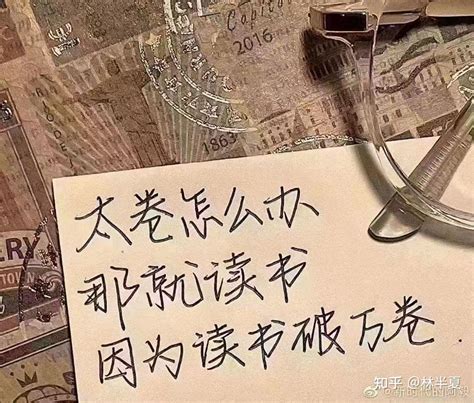 Capitol
2016
1863
太卷怎么办
那就读书
因为读书破万卷
知乎 @林半夏